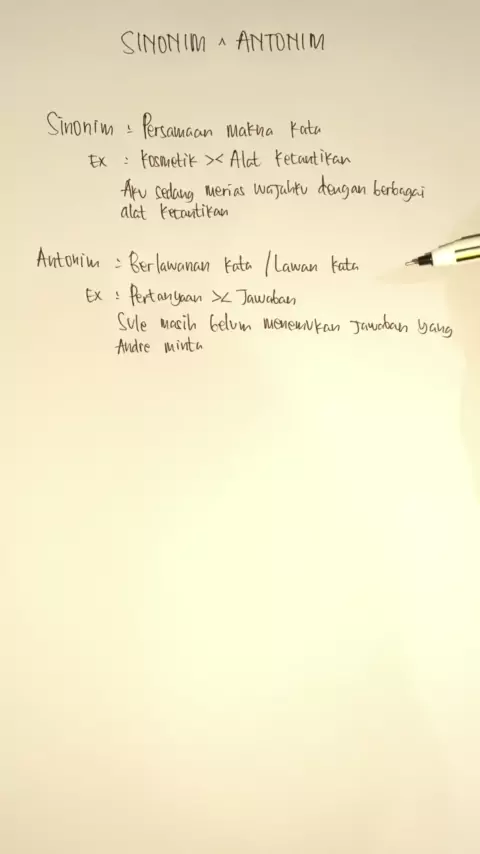 SINONIM ^ ANTONIM
Sinonim : Persamaan makna kata
Ex : Kosmetik >< Alat kecantikan
Aku sedang merias wajahku dengan berbagai
alat kecantikan
Antonim : Berlawanan kata / Lawan kata
Ex : Pertanyaan >< Jawaban
Sule masih belum menemukan jawaban yang
Andre minta